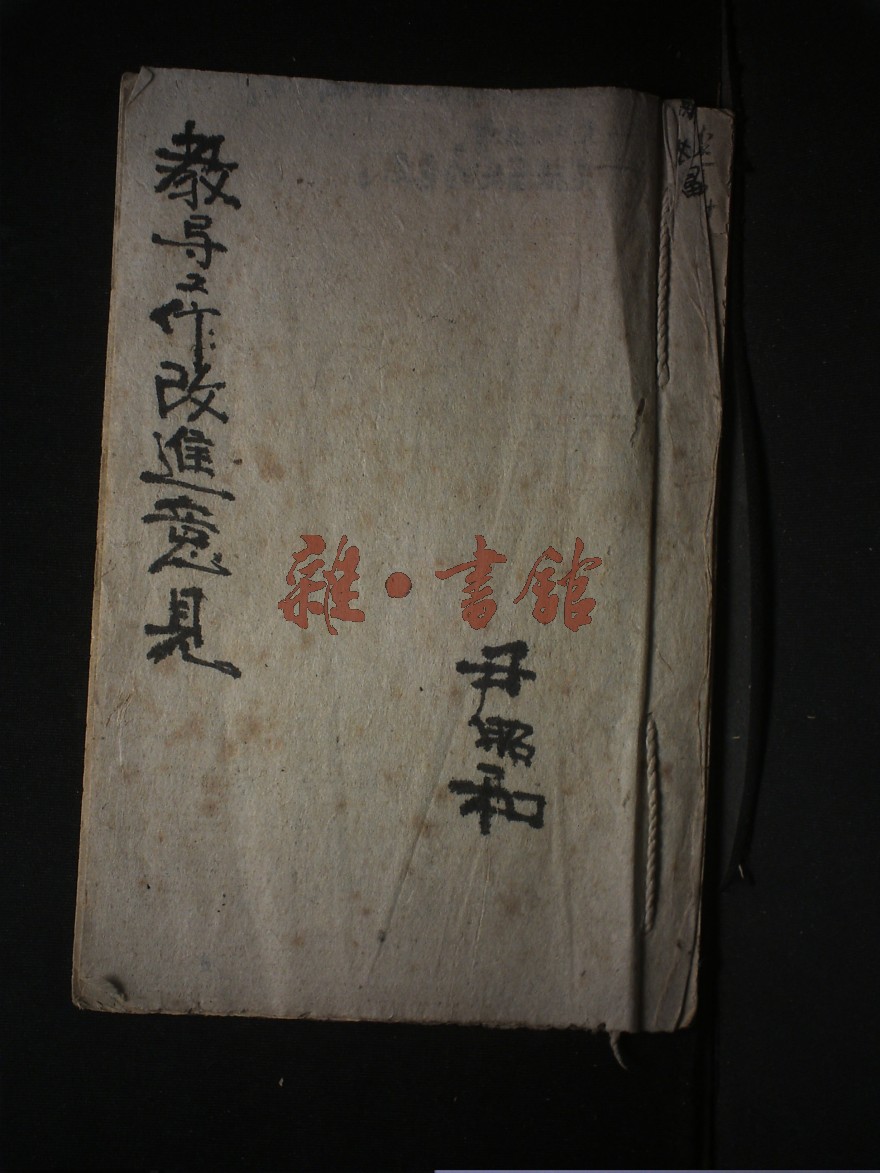 教导工作改進意見
雜·書館
尹昭和